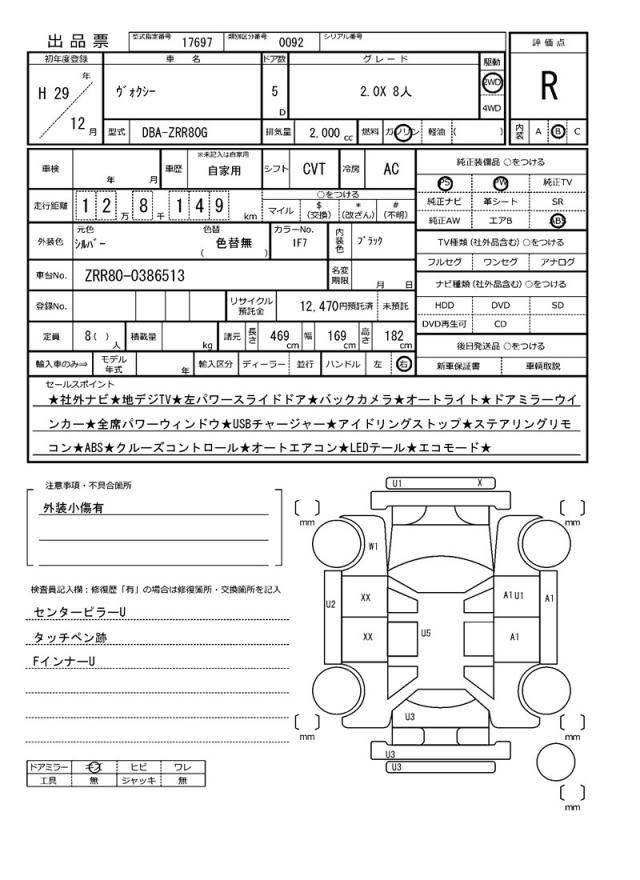 出品票 型式指定番号 17697 類別区分番号 0092 シリアル番号
評価点
R
内装 A B C
初年度登録 車名 ドア数 グレード 駆動
H 29 年 12 月
ヴォクシー 5 D 2.0X 8人 2WD 4WD
型式 DBA-ZRR80G 排気量 2,000 cc 燃料 ガソリン 軽油 ( )
車検 年 月 車歴 ※未記入は自家用 自家用 シフト CVT 冷房 AC
走行距離 1 2 万 8 千 1 4 9 km
○をつける
マイル $(交換) *(改ざん) #(不明)
外装色 元色 シルバー 色替 色替無 ( ) カラーNo. 1F7 内装色 ブラック
車台No. ZRR80-0386513 名変期限 月 日
登録No. リサイクル預託金 12,470円預託済 未預託
定員 8( )人 積載量 kg 諸元 長さ 469 cm 幅 169 cm 高さ 182 cm
輸入車のみ⇒ モデル年式 年 輸入区分 ディーラー 並行 ハンドル 左 右
純正装備品 ○をつける
PS PW 純正TV
純正ナビ 革シート SR
純正AW エアB ABS
TV種類(社外品含む)○をつける
フルセグ ワンセグ アナログ
ナビ種類(社外品含む)○をつける
HDD DVD SD
DVD再生可 CD
後日発送品 ○をつける
新車保証書 車輌取説
セールスポイント
★社外ナビ★地デジTV★左パワースライドドア★バックカメラ★オートライト★ドアミラーウイ
ンカー★全席パワーウィンドウ★USBチャージャー★アイドリングストップ★ステアリングリモ
コン★ABS★クルーズコントロール★オートエアコン★LEDテール★エコモード★
注意事項・不具合箇所
外装小傷有
検査員記入欄：修復歴「有」の場合は修復箇所・交換箇所を記入
センターピラーU
タッチペン跡
FインナーU
ドアミラー キズ ヒビ ワレ
工具 無 ジャッキ 無
U1 X
mm mm
W1
U2 XX A1 U1 A1
XX U5 A1
U3
mm mm
U3
U3
mm